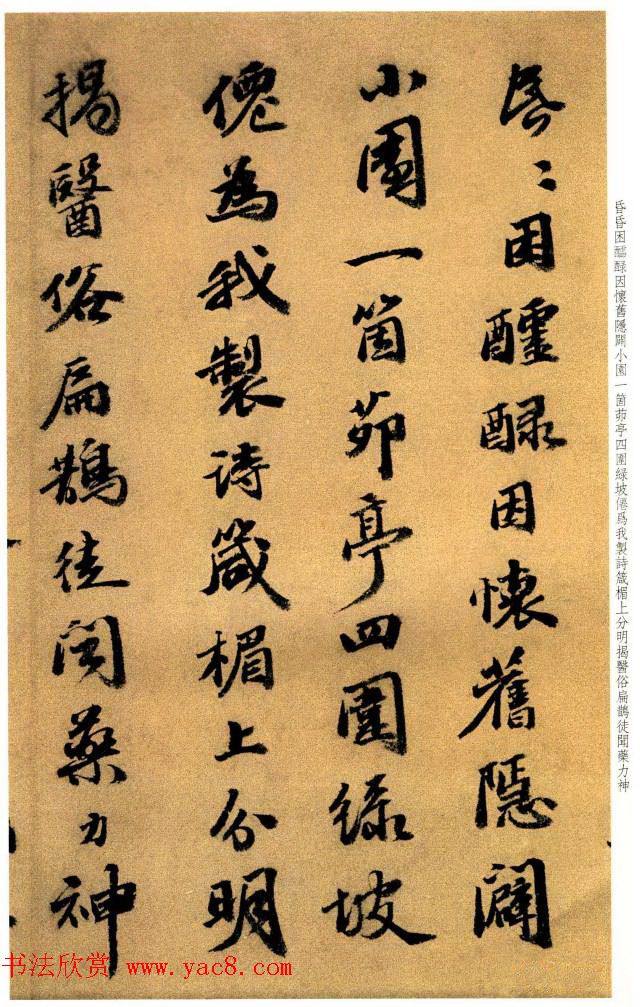 昏〻困醽醁因懷舊隱闢
小園一箇茆亭四圍綠坡
僊為我製詩箴楣上分明
揭醫俗扁鵲徒聞藥力神
昏昏困醽醁因懷舊隱闢小園一箇茆亭四圍綠坡僊爲我製詩箴楣上分明揭醫俗扁鵲徒聞藥力神
书法欣赏 www.yac8.com